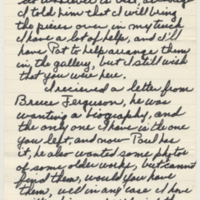 I told him that I will bring
the pieces over in my truck
I have a lot of help, and I'll
have Pat to help arrange them
in the gallery, but I still wish
that you were here.
I recieved a letter from
Bruce Ferguson, he was
wanting a biography, and
the only one I have is the one
you left, and now Paul has
it, he also wanted some photos
of some older works, but cannot
find them, would you have
them, well in any case I have